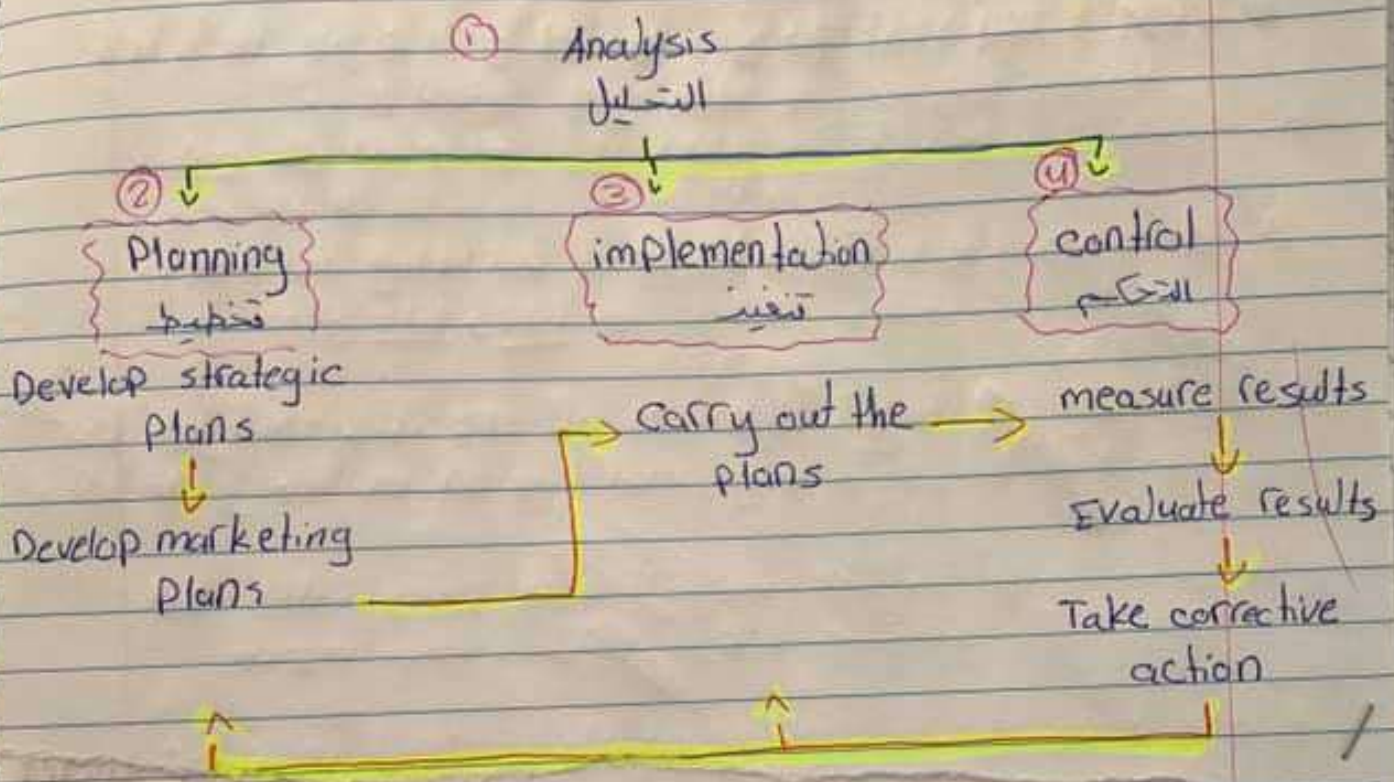 ① Analysis
التحليل
② ③ ④
Planning implementation control
تخطيط تنفيذ التحكم
Develop strategic
plans
Develop marketing
plans
carry out the
plans
measure results
Evaluate results
Take corrective
action